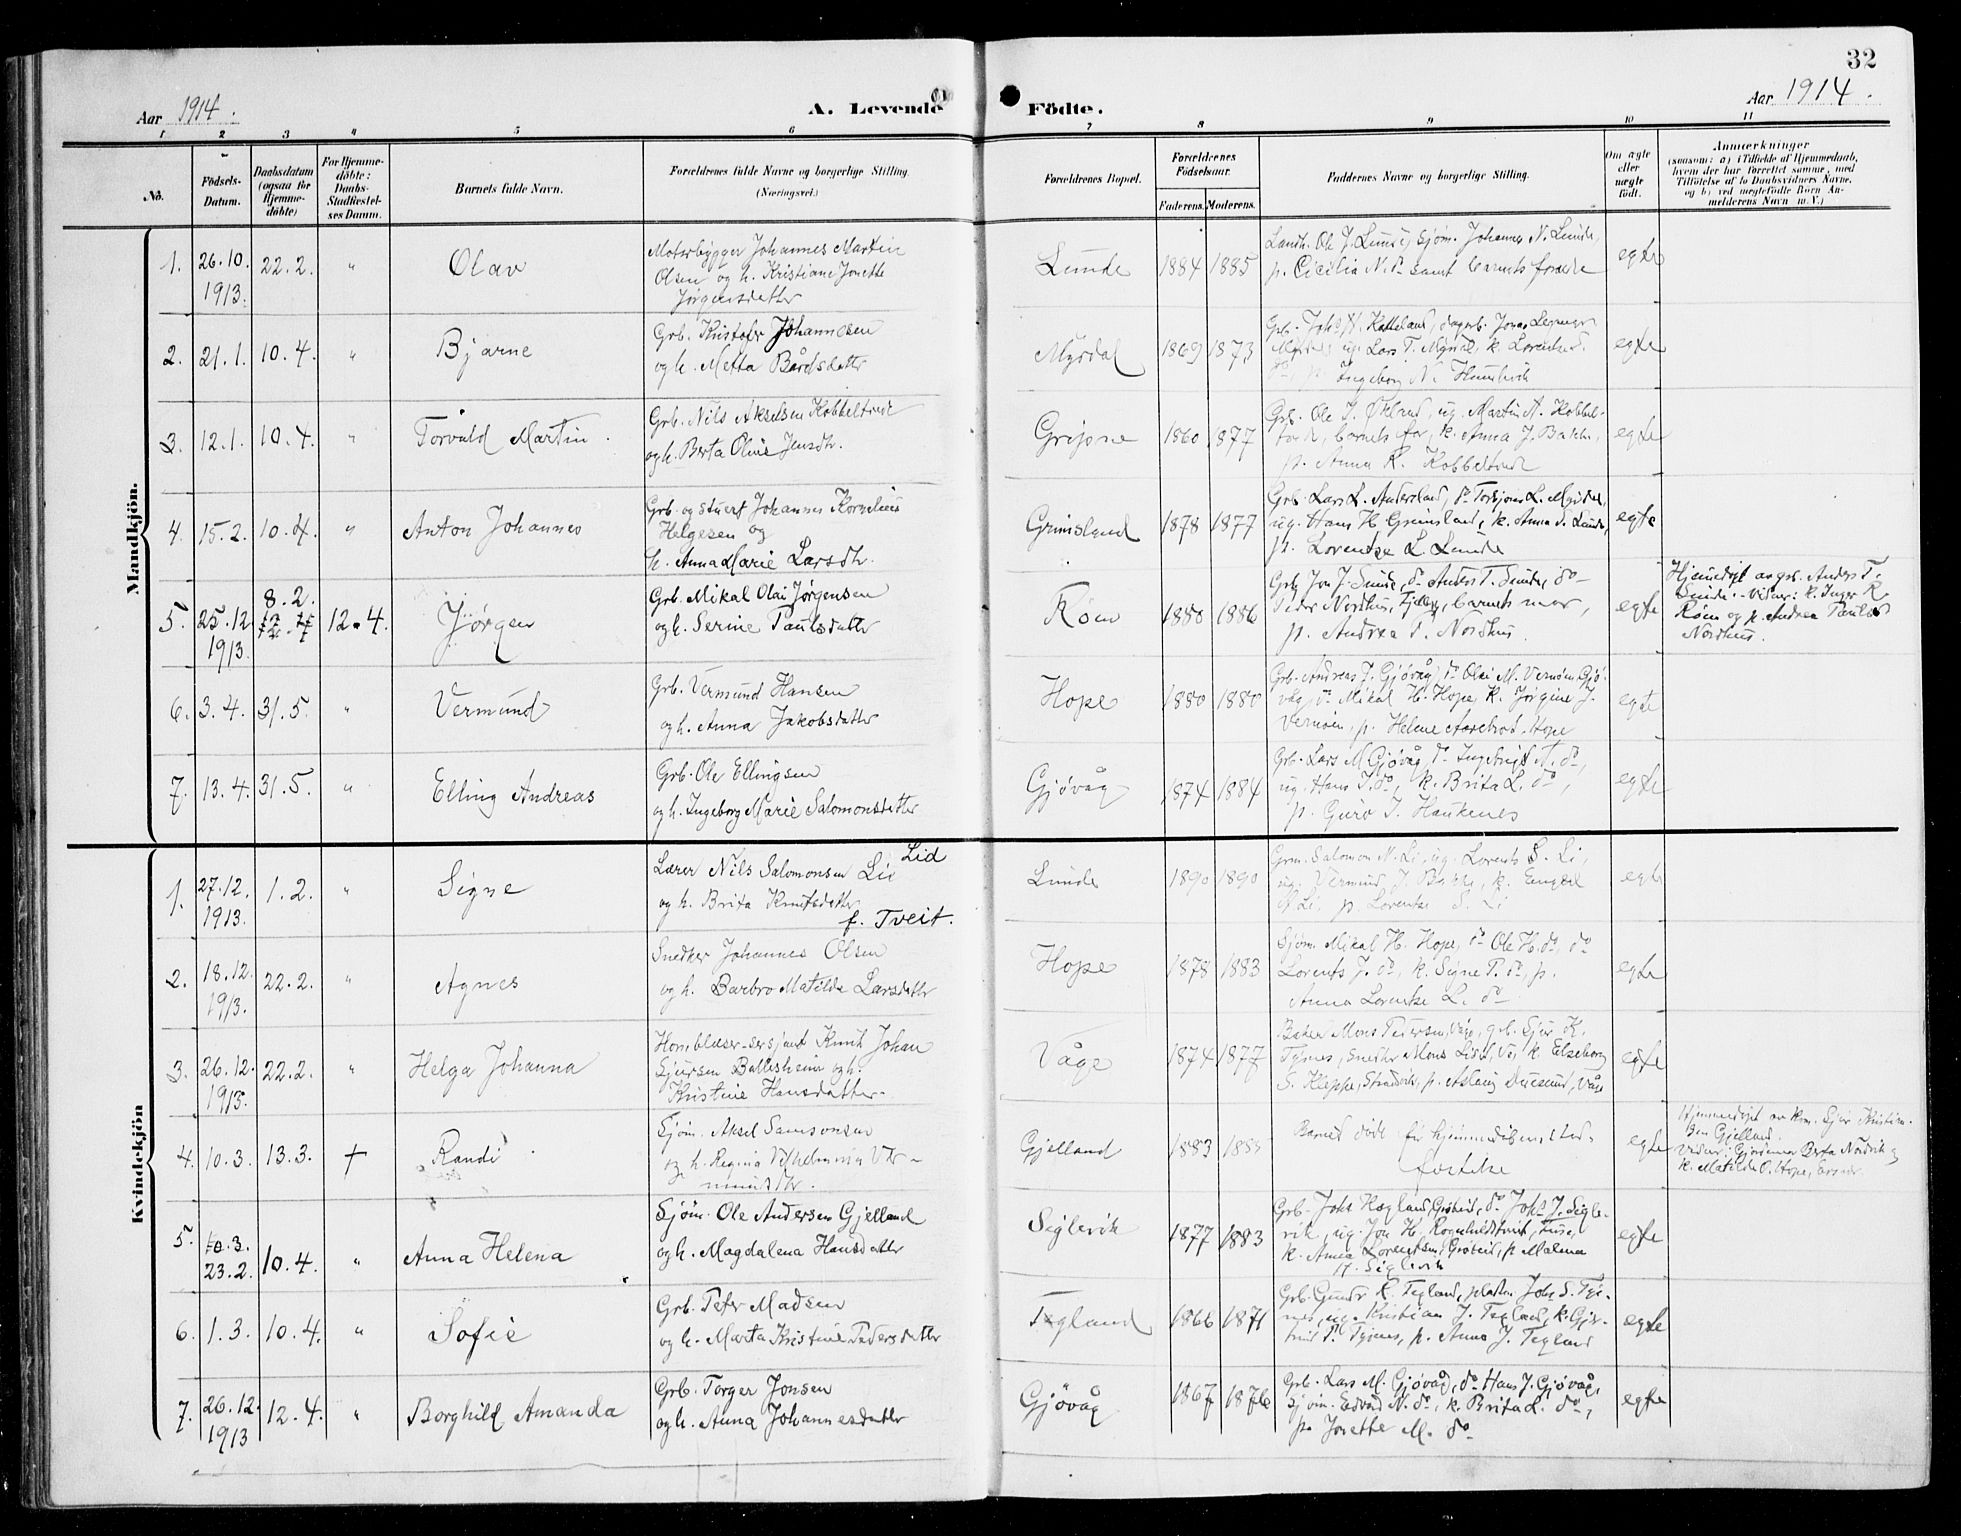 32
Aar 1914.
A. Levende Födte.
Aar 1914.
1 2 3 4 5 6 7 8 9 10 11
No.
Födsels-Datum.
Daabsdatum (ogsaa for Hjemme-döbte)
For Hjemme-döbte: Daabs-Stadfæstel-ses Datum.
Barnets fulde Navn.
Forældrenes fulde Navne og borgerlige Stilling.
(Næringsvei.)
Forældrenes Bopæl.
Forældrenes Födselsaar.
Faderens. Moderens.
Faddernes Navne og borgerlige Stilling.
Om ægte eller uægte födt.
Anmærkninger
(saasom: a) i Tilfælde af Hjemmedaab,
hvem der har forrettet samme, med
Tilföielse af to Daabsvidners Navne,
og b) ved uægtefödte Börn An-
melderens Navn m. V.)
Mandkjön.
1. 26.10. 1913. 22.2. " Olav
Motorbygger Johannes Martin
Olsen og h. Kristiane Jonette
Jørgensdatter
Lunde 1884 1885
Landh. Ole J. Lunde, Sjøm. Johannes N. Lunde,
p. Cicilia N. do samt barnets forældre
egte
2. 21.1. 10.4. " Bjarne
Grb. Kristofer Johannesen
og h. Metta Bårdsdatter
Mysdal 1869 1873
Lars T. Mysdal, k. Lorentse
p. Ingeborg N.
egte
3. 12.1. 10.4. " Torvald Martin.
Grb. Nils Akselsen Kobbeltvedt
og h. Berta Oline Jensdtr.
Gripne 1860 1877
Grb. Ole J. ug. Martin A. Kobbel-
tvedt, barnets far, k. Anna J. Bakke,
p. Anna K. Kobbeltvedt
egte
4. 15.2. 10.4. " Anton Johannes
Grb. og stuert Johannes Kornelius
Helgesen og
h. Anna Marie Larsdtr.
Grimsland 1878 1877
Grb. Lars L. Andersland, do Torbjørn L. Mysdal,
ug. Hans H. Grimsland, k. Anna S. Lunde,
p. Lorentse L. Lunde
egte
5. 25.12 1913. 8.2. 12.4. Jørgen
Grb. Mikal Olai Jørgensen
og h. Serine Paulsdatter
Røm 1880 1886
Grb. Jon J. Sunde, do Anders T. Sunde, do
Peder Nordhus, barnets mor,
p. Andrea P. Nordhus.
egte
Hjemmedøpt av grb. Anders T.
Sunde. - Vidner: k. Inger K.
Røm og p. Andrea Pauls
Nordhus.
6. 3.4. 31.5. " Vermund
Grb. Vermund Hansen
og h. Anna Jakobsdatter
Hope 1880 1880
Grb. Andreas J. Gjøvåg, do Olai M. Vernøen, Gjø-
våg, do Mikal H. Hope, k. Jørgine J.
Vernøen, p. Helene Hope
egte
7. 13.4. 31.5. " Elling Andreas
Grb. Ole Ellingsen
og h. Ingeborg Marie Salomonsdatter
Gjøvåg 1874 1884
Grb. Lars M. Gjøvåg, do Ingebrigt N. do,
ug. Hans J. do, k. Brita L. do,
p. Guro J. Haukenes
egte
Kvindekjön
1. 27.12. 1913. 1.2. " Signe
Lærer Nils Salomonsen Li Lid
og h. Brita Knutsdatter
f. Tveit.
Lunde 1890 1890
Grm. Salomon N. Li, ug. Lorents S. Li,
ug. Vermund J. Bakke, k.
Li p. Lorentse S. Li
egte
2. 18.12. 1913. 22.2. " Agnes
Snedker Johannes Olsen
og h. Barbro Matilde Larsdatter
Hope 1878 1883
Sjøm. Mikal H. Hope, do Ole H. do, do
Lorents J. do, k. Signe P. do, p.
Anna Lorentse L. do
egte
3. 26.12. 1913. 22.2. " Helga Johanna
Hornblæser-sersjant Knut Johan
Sjursen Ballesheim og h.
Kristine Hansdatter
Våge 1874 1877
Baker Mons Pedersen, Våge, grb. Sjur K.
Tysnes, snedker Mons k. Elseborg
S. Kleppe, Strandvik, p. Aslaug Våge
egte
4. 10.3. 13.3. † Randi.
Sjøm. Aksel Samsonsen
og h. Regina Vilhelmina Ver-
mundsdtr.
Gjelland 1883
Barnet døde før hjemmedåpen stad-
fæstedes
egte
Hjemmedøpt av Sjur Kristian-
sen Gjelland.
Vidner: Gjordemor Berta Nordvik og
k. Matilde O. Hope,
5. 10.3. 23.2. 10.4. " Anna Helena
Sjøm. Ole Andersen Gjelland
og h. Magdalena Hansdatter
Siglevik 1877 1883
Grb. Johs Hægland, do Johs J. Sigle-
vik, ug. Jon H. Rognholdstveit, Fuse,
k. Anna Lorentsen, p. Malena
H. Siglevik
egte
6. 1.3. 10.4. " Sofie
Grb. Peter Madsen
og h. Marta Kristine Pedersdatter
Tegland 1866 1871
Grb. K. Tegland, Johs S. Ty-
nes, ug. Kristian J. Tegland, k. Gjer-
trud P. Tysnes, p. Anna J. Tegland
egte
7. 26.12. 1913 12.4. " Borghild Amanda
Grb. Torger Jonsen
og h. Anna Johannesdatter
Gjøvåg 1867 1876
Grb. Lars M. Gjøvåg, do Hans J. Gjøvåg,
Sjøm. Edvard N. do, k. Brita L. do,
p. Josette M. do
egte